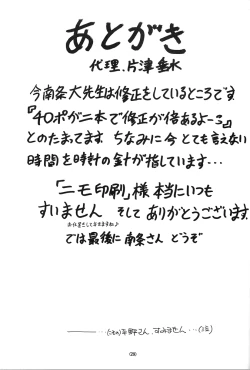 あとがき
代理.片津垂水
今南条大先生は修正をしているところです
『40ポが二本で修正が倍あるよ〜ろ』
とのたまってます ちなみに今とても言えない
時間を時計の針が指しています…
「ニモ印刷」様 本当にいつも
すいません そして ありがとうございます
では最後に 南条さん どうぞ
すみません
(28)